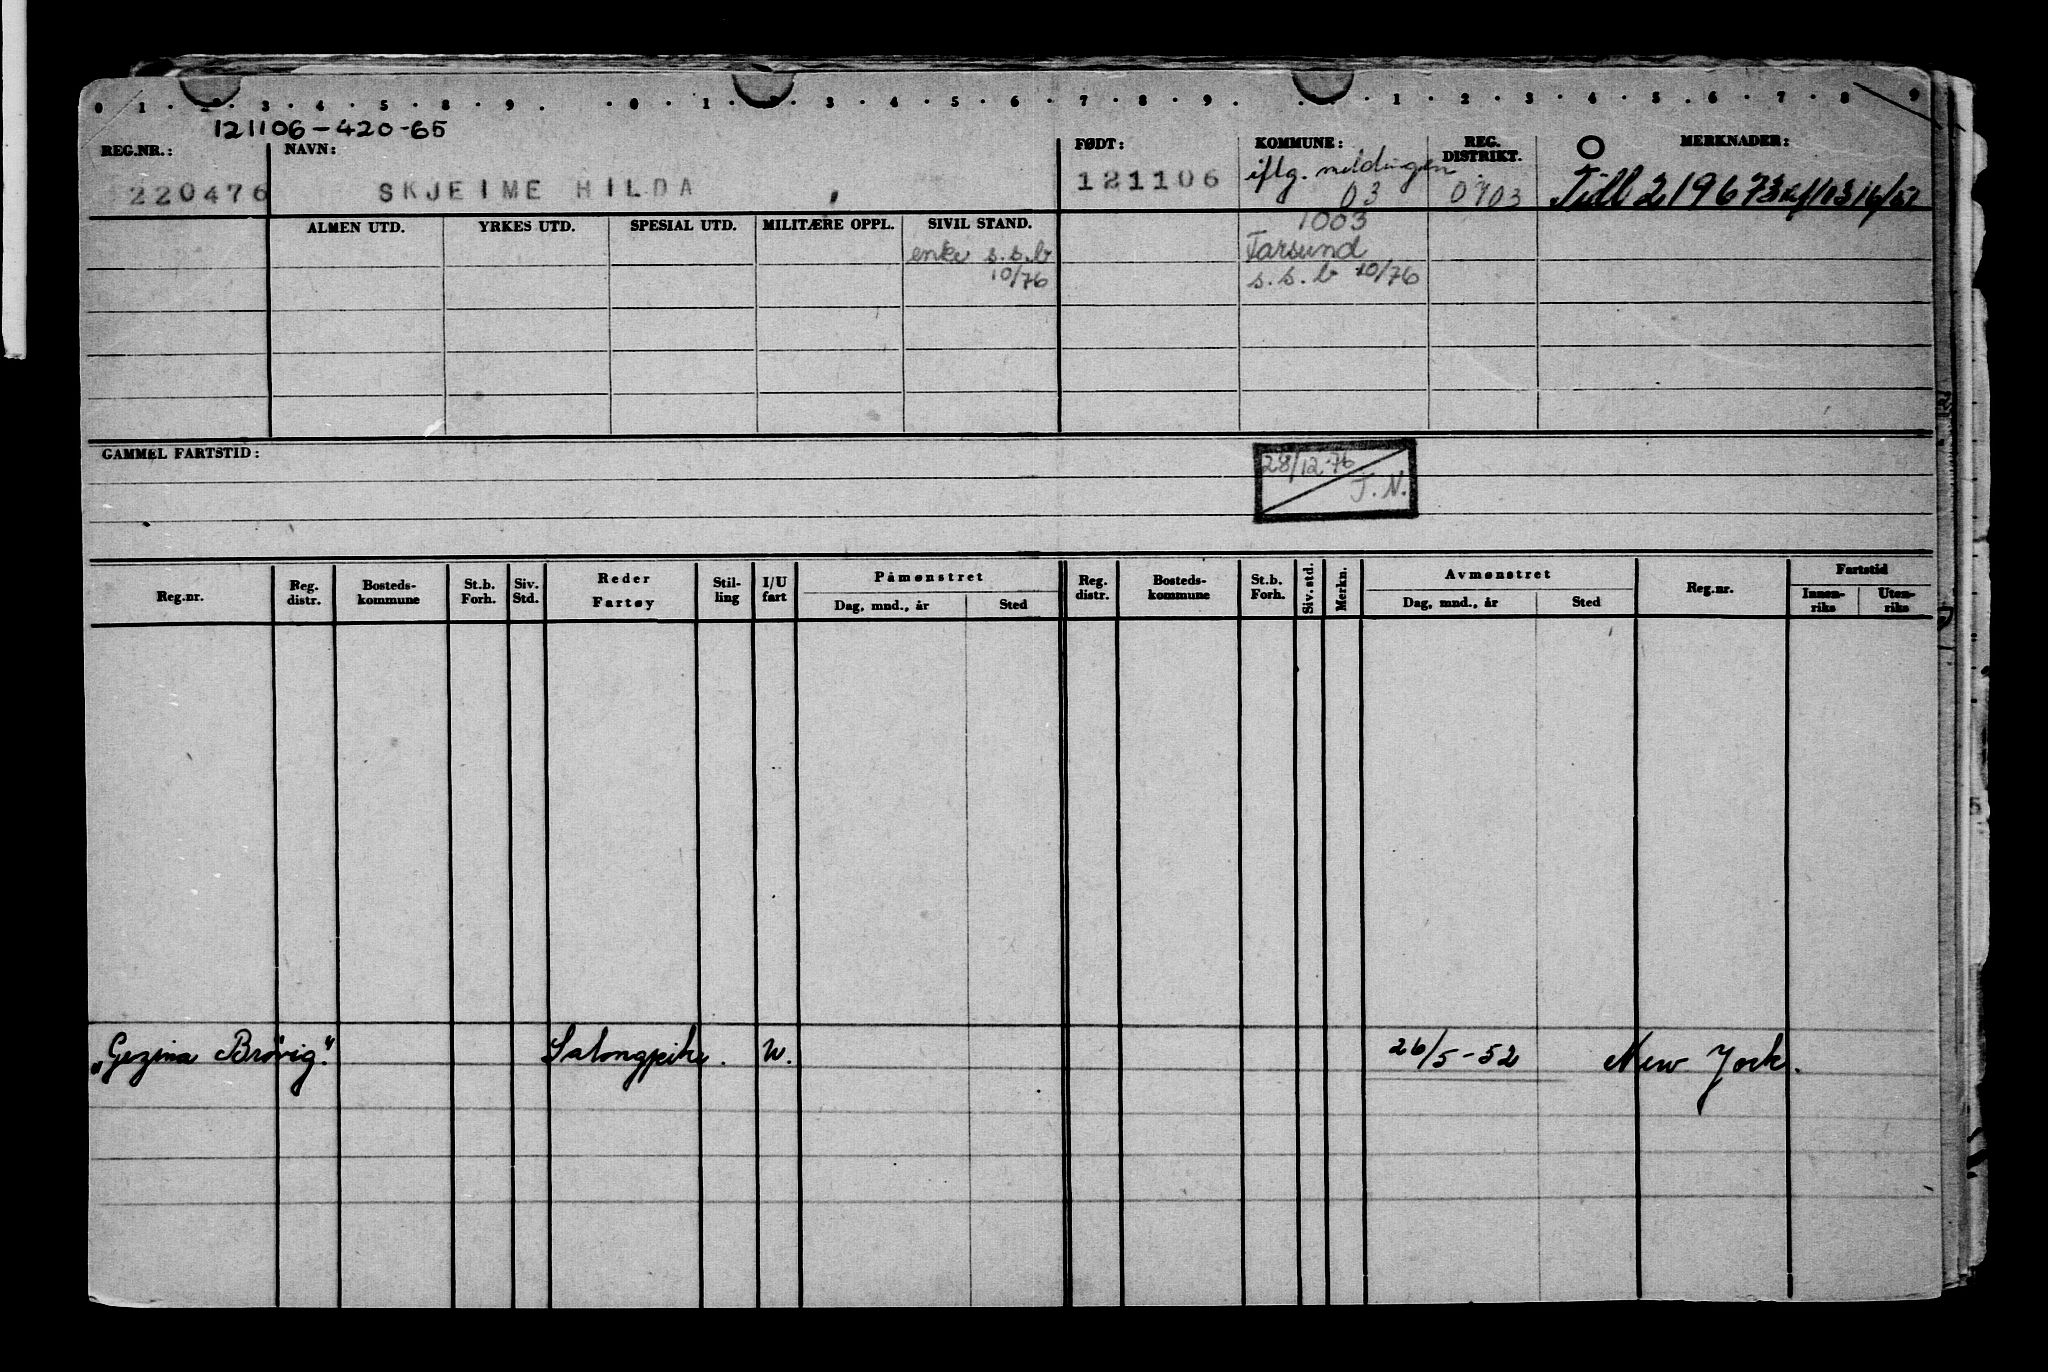 0 1 · 2 · 3 · 4 · 5 · 8 · 9 · · 0 · 1 · 2 · 3 · 4 · 5 · 6 · 7 · 8 · 9 · · 1 · 2 · 3 · 4 · 5 · 6 · 7 · 8 · 9
121106-420-65
REG.NR.: NAVN: FØDT: KOMMUNE: REG. DISTRIKT. MERKNADER:
iflg. meldingen
220476 SKJEIME HILDA 121106 03 0703 Till 219673
ALMEN UTD. YRKES UTD. SPESIAL UTD. MILITÆRE OPPL. SIVIL STAND. 1003
enke s.s.b Farsund
10/76 s.s.b 10/76
GAMMEL FARTSTID: 28/12-76
J.N.
Reg.nr. Reg. distr. Bosteds-kommune St.b. Forh. Siv. Std. Reder Fartøy Stil-ling I/U fart Påmønstret Dag, mnd., år Sted Reg. distr. Bosteds-kommune St.b. Forh. Siv. std. Merkn. Avmønstret Dag, mnd., år Sted Reg.nr. Fartstid Innen-riks Uten-riks
"Gezina Brøvig". Salongpike. U. 26/5-52 New York.